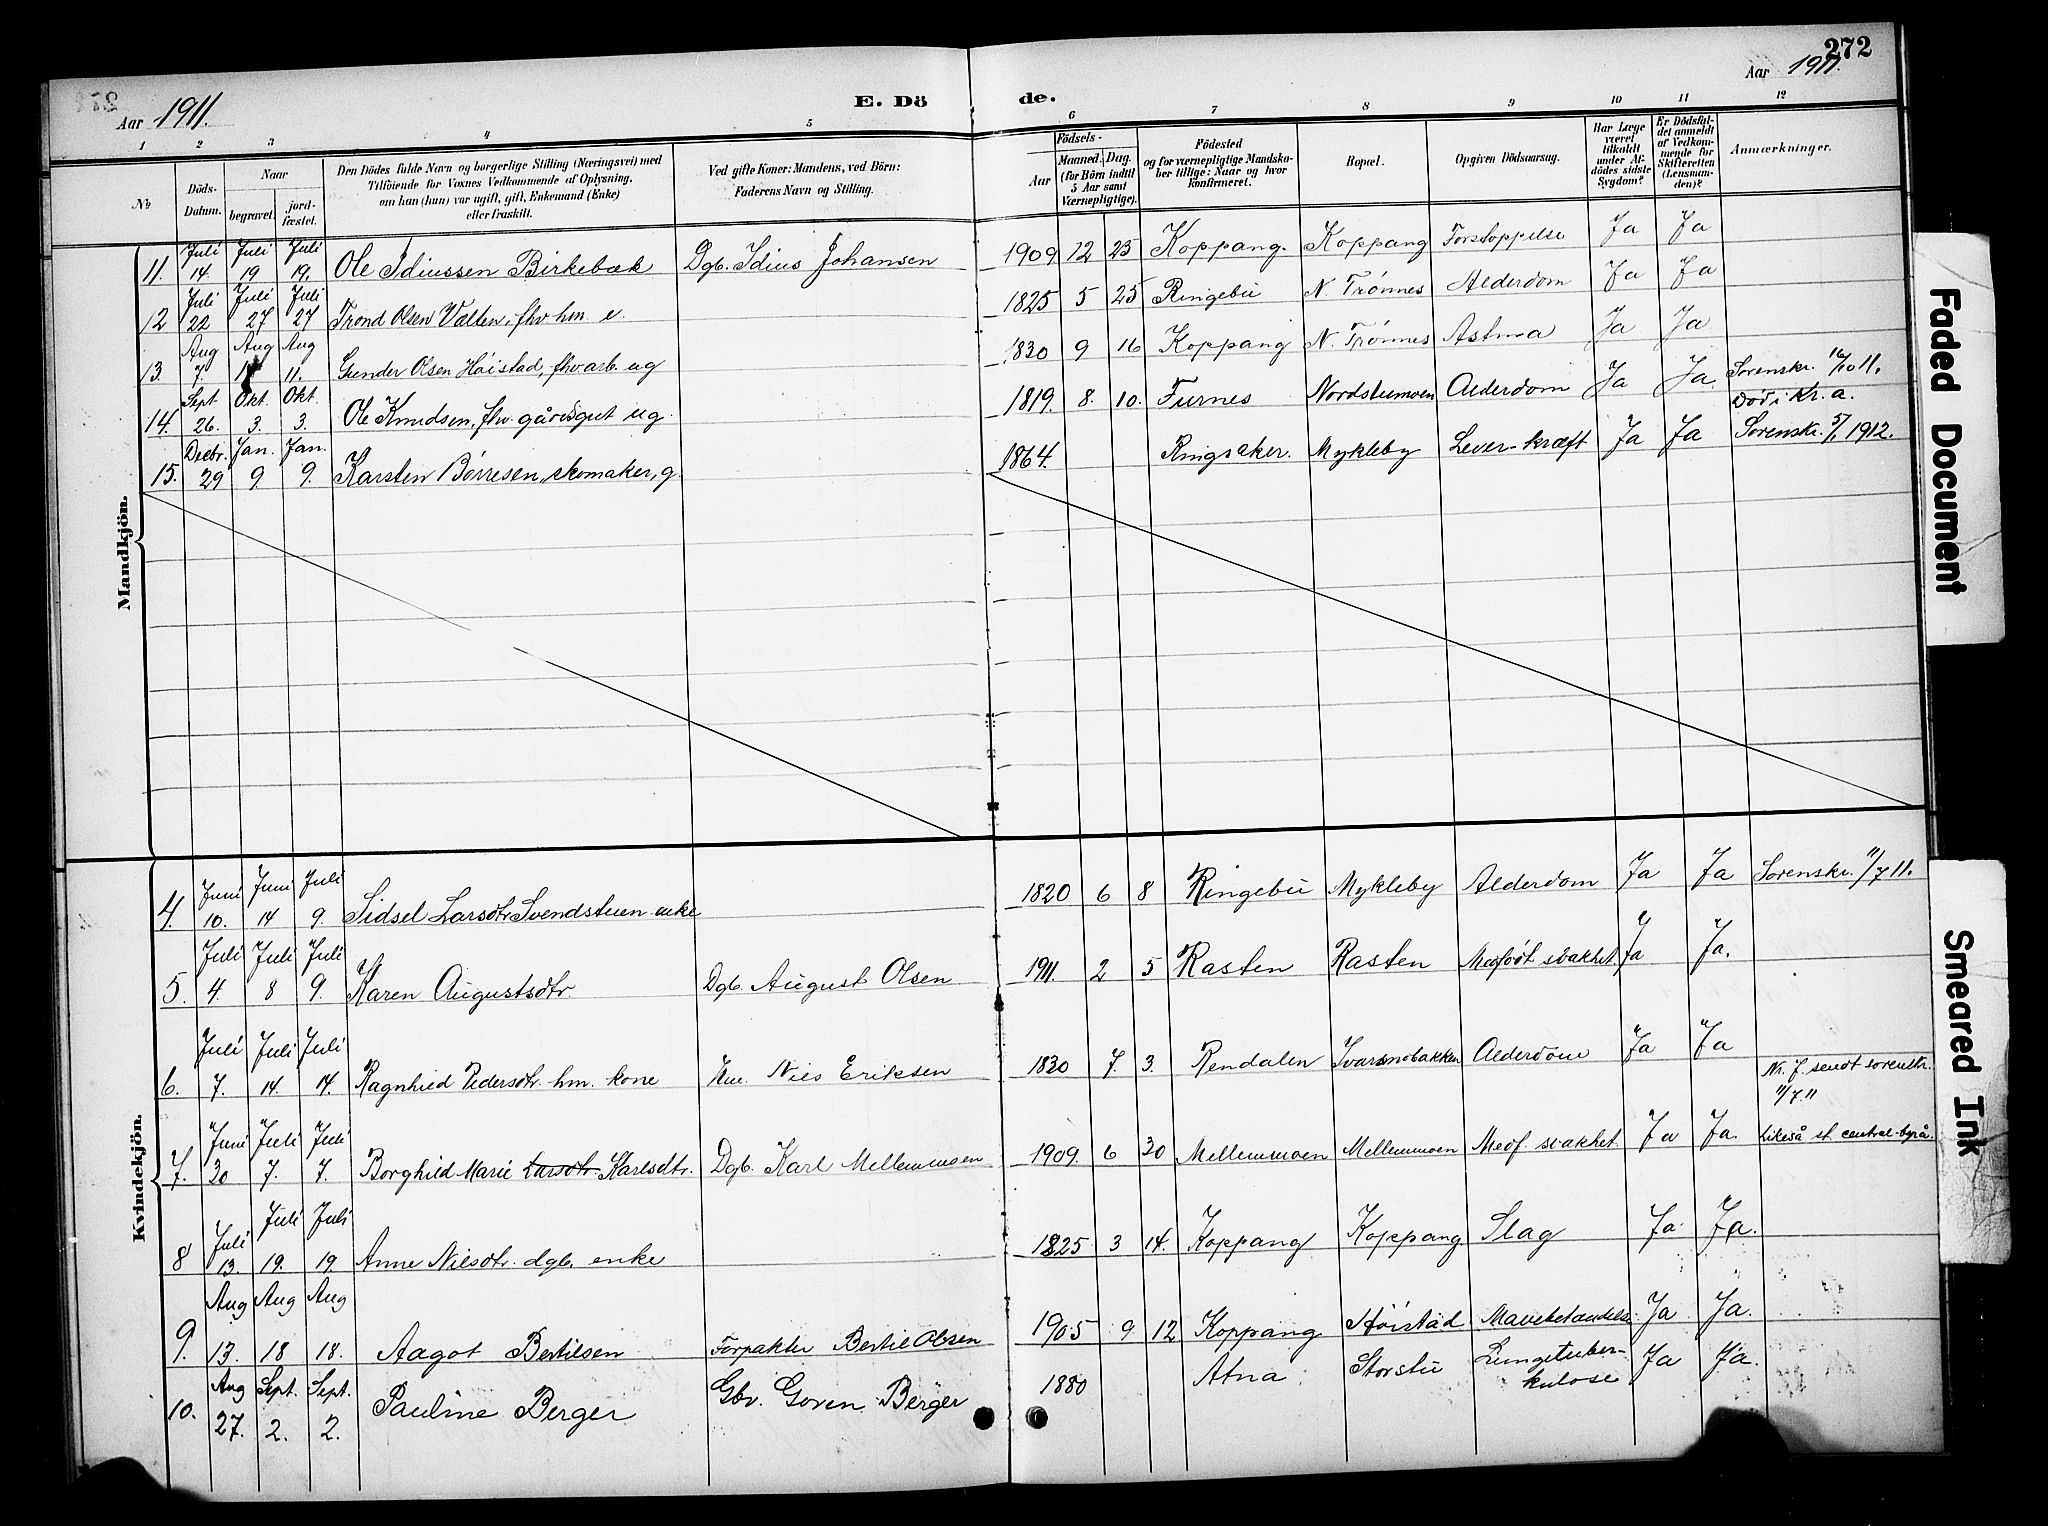 272
Aar 1911.
E. Dö de.
Aar 1911.
1 2 3 4 5 6 7 8 9 10 11 12
No.
Döds-Datum.
Naar
begravet.
jordfæstet.
Den Dödes fulde Navn og borgerlige Stilling (Næringsvei) med
Tilföiende for Voxnes Vedkommende af Oplysning,
om han (hun) var ugift, gift, Enkemand (Enke)
eller fraskilt.
Ved gifte Koner: Mandens, ved Börn:
Faderens Navn og Stilling.
Födsels-
Aar
Maaned. Dag.
(for Börn indtil
5 Aar samt
Værnepligtige).
Födested
og for værnepligtige Mandska-
ber tillige: Naar og hvor
konfirmeret.
Bopæl.
Opgiven Dödsaarsag.
Har Læge
været
tilkaldt
under Af-
dödes sidste
Sygdom?
Er Dödsfal-
det anmeldt
af Vedkom-
mende for
Skifteretten
(Lensman-
den)?
Anmærkninger.
Mandkjön.
11. Juli 14. Juli 19 Juli 19. Ole Idiussen Birkebæk Dgb. Idius Johansen 1909 12 23 Koppang. Koppang Forstoppelse Ja Ja
12 Juli 22 Juli 27 Juli 27 Trond Olsen Vælten, fhv hm. e. 1825 5 25 Ringebu N. Trønnes Alderdom Ja Ja
13. Aug 7. Aug Aug 11. Gunder Olsen Høistad, fhv arb. ug 1830 9 16 Koppang N. Trønnes Astma Ja Ja
14. Sept 26. Okt. 3. Okt. 3. Ole Knudsen, fhv gårdsgut ug. 1819. 8. 10. Furnes Nordstumoen Alderdom Ja Ja Sorenskr. 16/10 11. Död i Kr. a.
15. Decbr. 29 Jan. 9 Jan. 9. Karsten Børresen, skomaker, g. 1864. Ringsaker. Mykleby Lever-kræft Ja Ja Sorenskr. 5/1 1912.
Kvindekjön.
4. Juni 10. Juni 14 Juli 9. Sidsel Larsdtr Svendstuen enke 1820 6 8 Ringebu Mykleby Alderdom Ja Ja Sorenskr. 11/7 11.
5. Juli 4. Juli 8 Juli 9. Karen Augustsdtr. Dgb. August Olsen 1911. 2 5 Rasten Rasten Medfödt svakhet Ja Ja.
6. Juli 7. Juli 14. Juli 14. Ragnhild Pedersdtr. hm. kone Hm. Nils Eriksen 1830 7. 3. Rendalen Ivarsmobakken Alderdom Ja Ja
Nr. 7. sendt sorenskr. 11/7 11
7. Juni 30 Juli 7. Juli 7. Borghild Marie Larsdtr. Karlsdtr. Dgb. Karl Mellemmoen 1909. 6 30 Mellemmoen Mellemmoen Medf. svakhet. Ja Ja. Likeså st. central-byrå.
8 Juli 13. Juli 19. Juli 19. Anne Nilsdtr. dgb. enke 1825 3 14. Koppang Koppang Slag Ja Ja.
9. Aug 13. Aug 18 Aug 18. Aagot Bertilsen Forpakter Bertil Olsen 1905 9 12 Koppang Høistad Mavebetændelse Ja Ja.
10. Aug 27. Sept. 2. Sept. 2. Pauline Berger Gbr. Goren Berger 1880 Atna Storstu Lungetuber-
kulose Ja Ja.
Faded Document
Smeared Ink